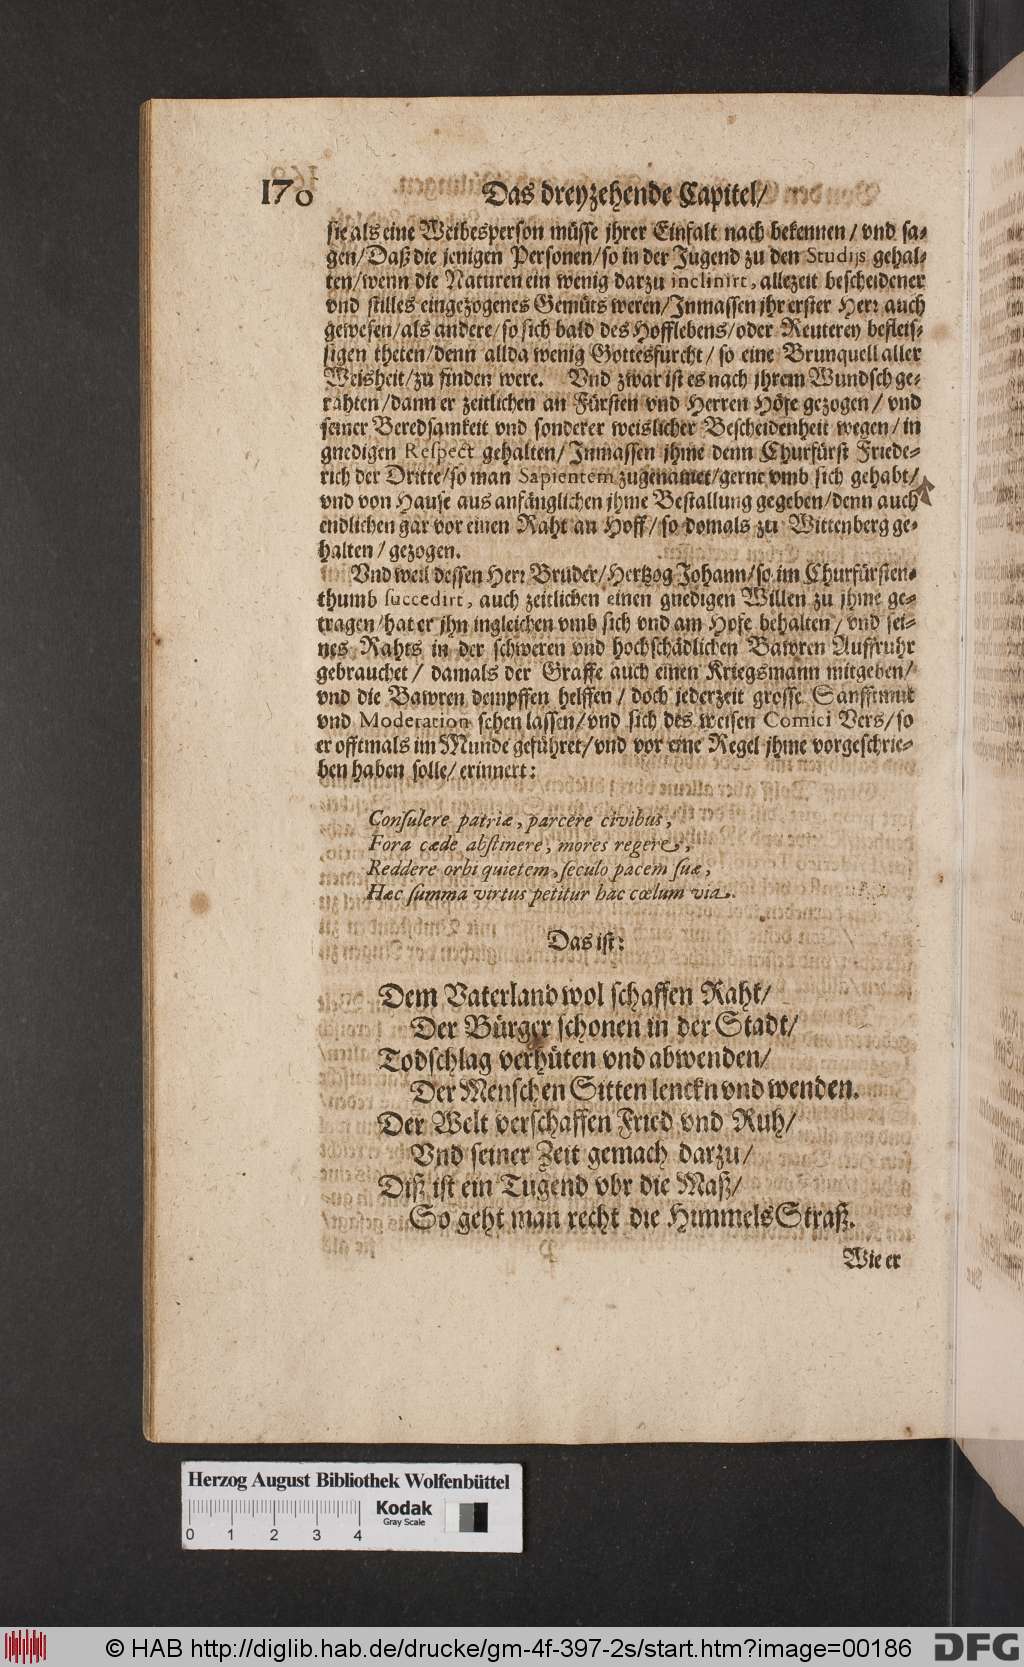 170 Das dreyzehende Capitel/
sie als eine Weibesperson müsse jhrer Einfalt nach bekennen/ vnd sa-
gen/ Daß die jenigen Personen/ so in der Jugend zu den Studijs gehal-
ten/ wenn die Naturen ein wenig darzu inclinirt, allezeit bescheidener
vnd stilles eingezogenes Gemüts weren/ Jnmassen jhr erster Herr auch
gewesen/ als andere/ so sich bald des Hofflebens/ oder Reuterey befleis-
sigen theten/ denn allda wenig Gottesfurcht/ so eine Brunquell aller
Weisheit/ zu finden were. Vnd zwar ist es nach jhrem Wundsch ge-
rahten/ dann er zeitlichen an Fürsten vnd Herren Höfe gezogen/ vnd
seiner Beredsamkeit vnd sonderer weislicher Bescheidenheit wegen/ in
gnedigen Respect gehalten/ Jnmassen jhme denn Churfürst Friede-
rich der Dritte/ so man Sapientem zugenamet/ gerne vmb sich gehabt/
vnd von Hause aus anfänglichen jhme Bestallung gegeben/ denn auch
endlichen gar vor einen Raht an Hoff/ so domals zu Wittenberg ge-
halten/ gezogen.
Vnd weil dessen Herr Bruder/ Hertzog Johann/ so im Churfürsten-
thumb succedirt, auch zeitlichen einen gnedigen Willen zu jhme ge-
tragen/ hat er jhn ingleichen vmb sich vnd am Hofe behalten/ vnd sei-
nes Rahts in der schweren vnd hochschädlichen Bawren Auffruhr
gebrauchet/ damals der Graffe auch einen Kriegsmann mitgeben/
vnd die Bawren dempffen helffen/ doch jederzeit grosse Sanfftmut
vnd Moderation sehen lassen/ vnd sich des weisen Comici Vers/ so
er offtmals im Munde geführet/ vnd vor eine Regel jhme vorgeschrie-
ben haben solle/ erinnert:
Consulere patriæ, parcere civibus,
Fora cæde abstinere, mores regere,
Reddere orbi quietem, seculo pacem suæ,
Hæc summa virtus petitur hac cœlum via.
Das ist:
Dem Vaterland wol schaffen Raht/
Der Bürger schonen in der Stadt/
Todschlag verhüten vnd abwenden/
Der Menschen Sitten lenckn vnd wenden.
Der Welt verschaffen Fried vnd Ruh/
Vnd seiner Zeit gemach darzu/
Diß ist ein Tugend vbr die Maß/
So geht man recht die HimmelsStraß.
Wie er
Herzog August Bibliothek Wolfenbüttel
Kodak
Gray Scale
0 1 2 3 4
© HAB http://diglib.hab.de/drucke/gm-4f-397-2s/start.htm?image=00186 DFG